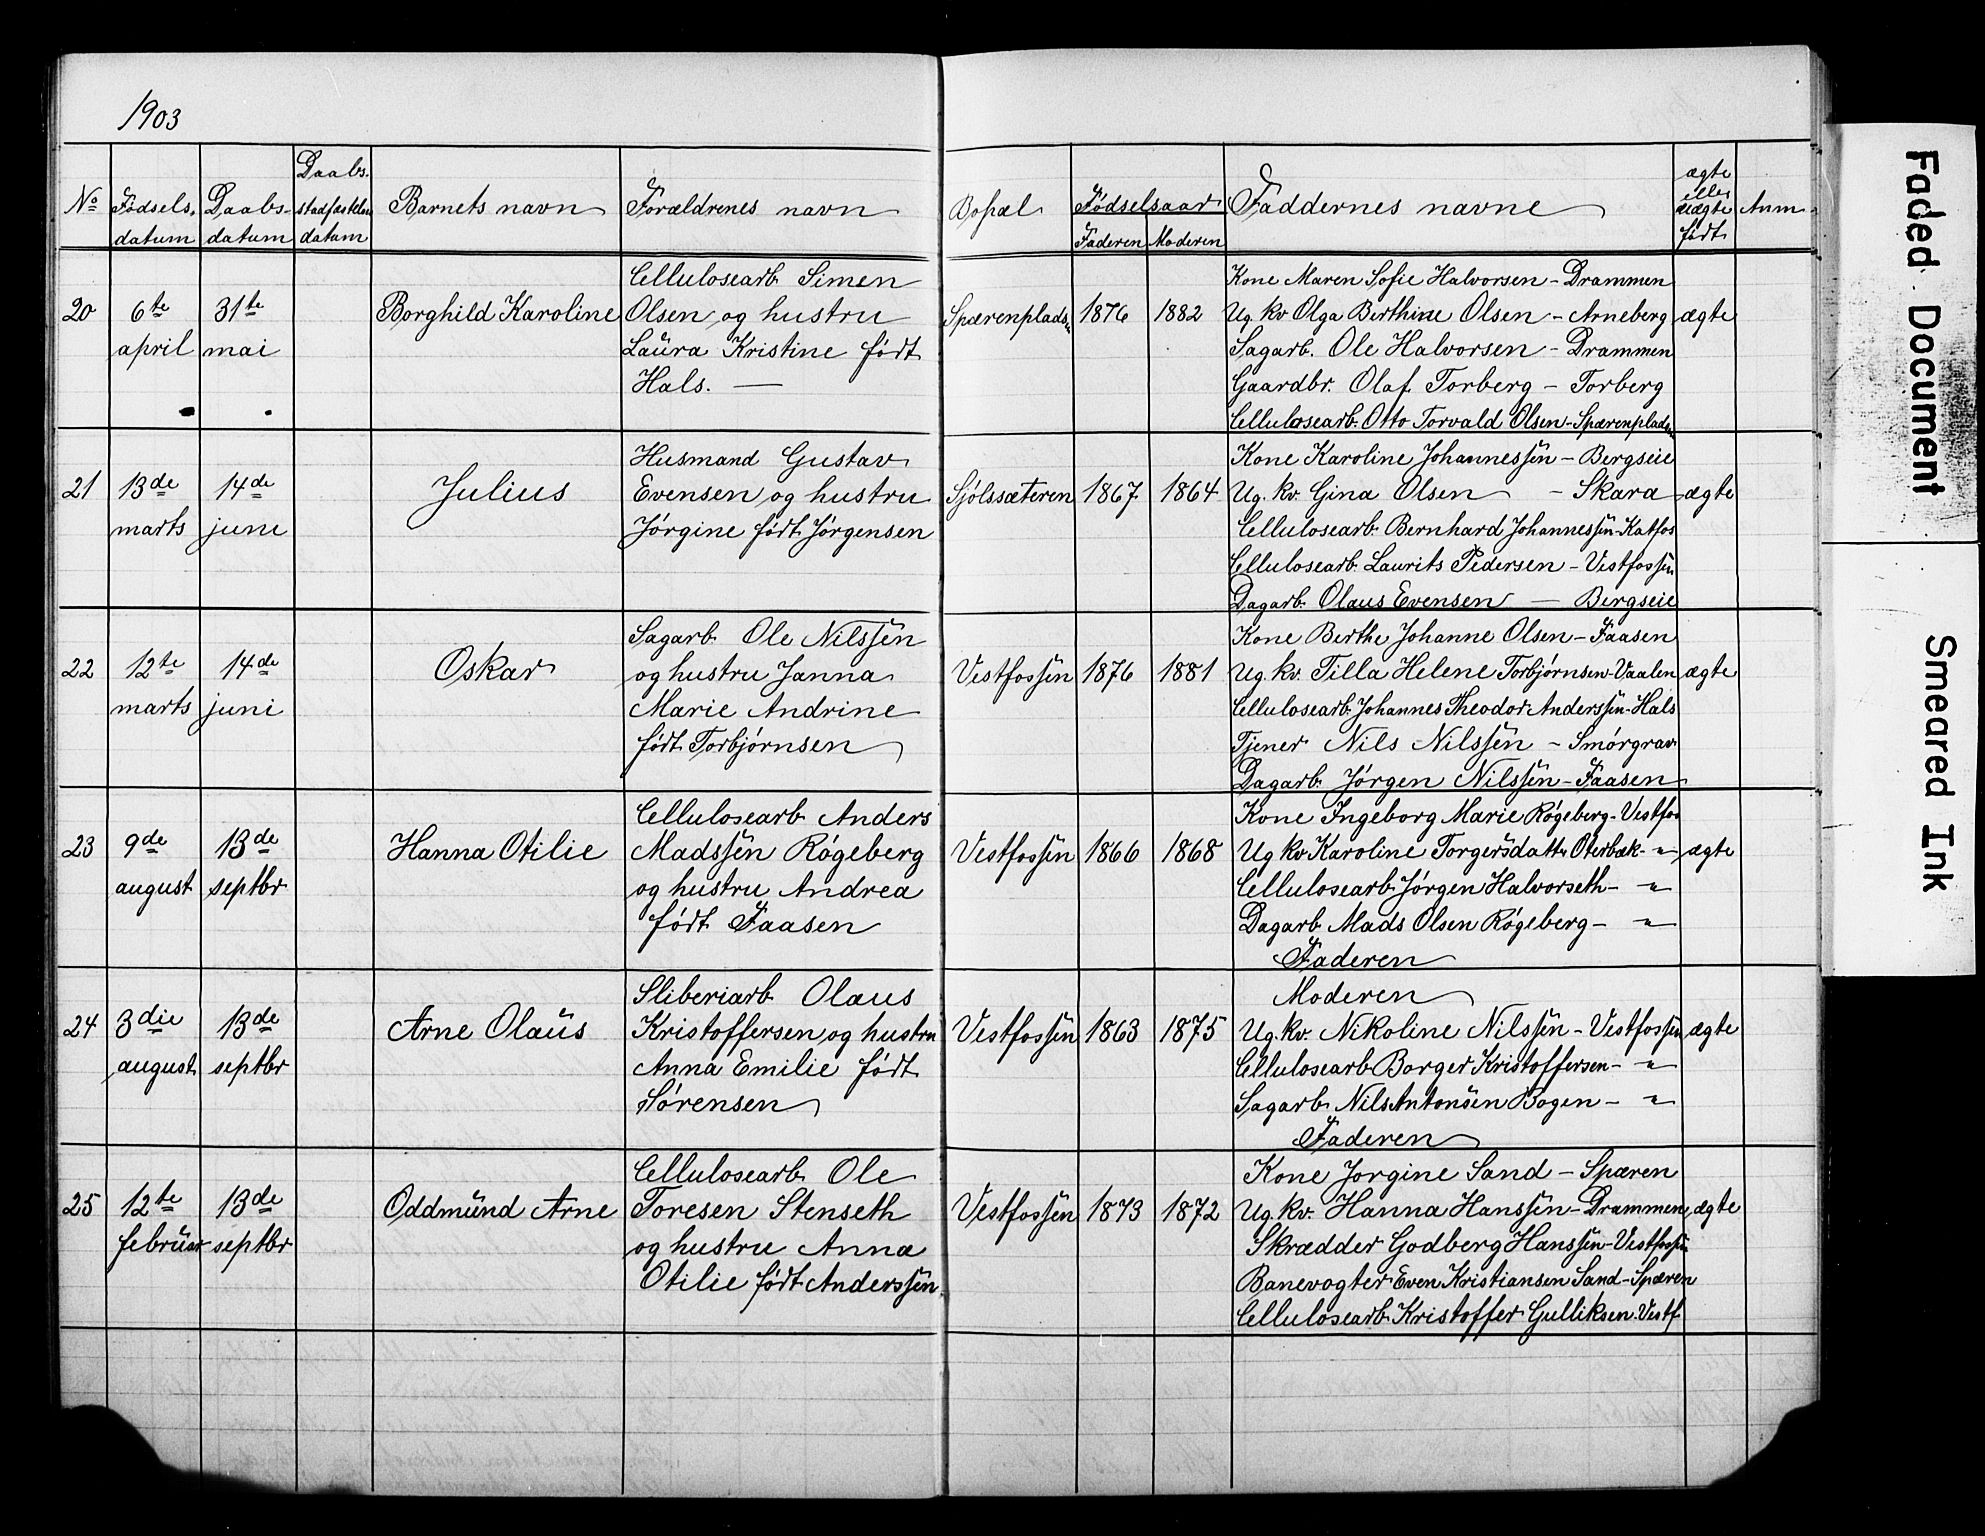 1903
No
Fødsels-
datum
Daabs-
datum
Daabs-
stadfæstelses
datum
Barnets navn
Forældrenes navn
Bopæl
Fødselsaar
Faderen
Moderen
Faddernes navne
ægte
eller
uægte
født
Anm.
20
6te
april
31te
mai
Borghild Karoline
Cellulosearb. Simen
Olsen og hustru
Laura Kristine født
Hals. —
Spærenpladsen
1876
1882
Kone Maren Sofie Halvorsen - Drammen
Ug. kv Olga Berthine Olsen - Arneberg
Sagarb. Ole Halvorsen - Drammen
Gaardbr. Olaf Torberg - Torberg
Cellulosearb. Otto Torvald Olsen - Spærenpladsen
ægte
21
13de
marts
14de
juni
Julius
Husmand Gustav
Evensen og hustru
Jørgine født Jørgensen
Sjølssæteren
1867
1864
Kone Karoline Johannessen - Bergseie
Ug. kv. Gina Olsen - Skara
Cellulosearb. Bernhard Johannessen - Katfos
Cellulosearb. Laurits Pedersen - Vestfossen
Dagarb. Olaus Evensen — Bergseie
ægte
22
12te
marts
14de
juni
Oskar
Sagarb. Ole Nilssen
og hustru Janna
Marie Andrine
født Torbjørnsen
Vestfossen
1876
1881
Kone Berthe Johanne Olsen - Faasen
Ug. kv. Tilla Helene Torbjørnsen - Vaalen
Cellulosearb. Johannes Theodor Anderssen - Hals
Tjener Nils Nilssen - Smørgrav
Dagarb. Jørgen Nilssen - Faasen
ægte
23
9de
august
13de
septbr
Hanna Otilie
Cellulosearb. Anders
Madssen Røgeberg
og hustru Andrea
født Faasen
Vestfossen
1866
1868
Kone Ingeborg Marie Røgeberg - Vestfos
Ug. kv Karoline Torgersdatter Oterbæk - "
Cellulosearb. Jørgen Halvorseth - "
Dagarb. Mads Olsen Røgeberg - "
Faderen
ægte
24
3die
august
13de
septbr
Arne Olaus
Sliberiarb. Olaus
Kristoffersen og hustru
Anna Emilie født
Sørensen
Vestfossen
1863
1875
Moderen
Ug. kv. Nikoline Nilssen - Vestfossen
Cellulosearb. Borger Kristoffersen - "
Sagarb. Nils Antonsen Bogen - "
Faderen
ægte
25
12te
februar
13de
septbr
Oddmund Arne
Cellulosearb. Ole
Toresen Stenseth
og hustru Anna
Otilie født Anderssen.
Vestfossen
1873
1872
Kone Jorgine Sand - Spæren
Ug. kv. Hanna Hanssen - Drammen
Skrædder Godberg Hanssen - Vestfossen
Banevogter Even Kristiansen Sand - Spæren
Cellulosearb. Kristoffer Gulliksen - Vestf.
ægte
Faded Document
Smeared Ink